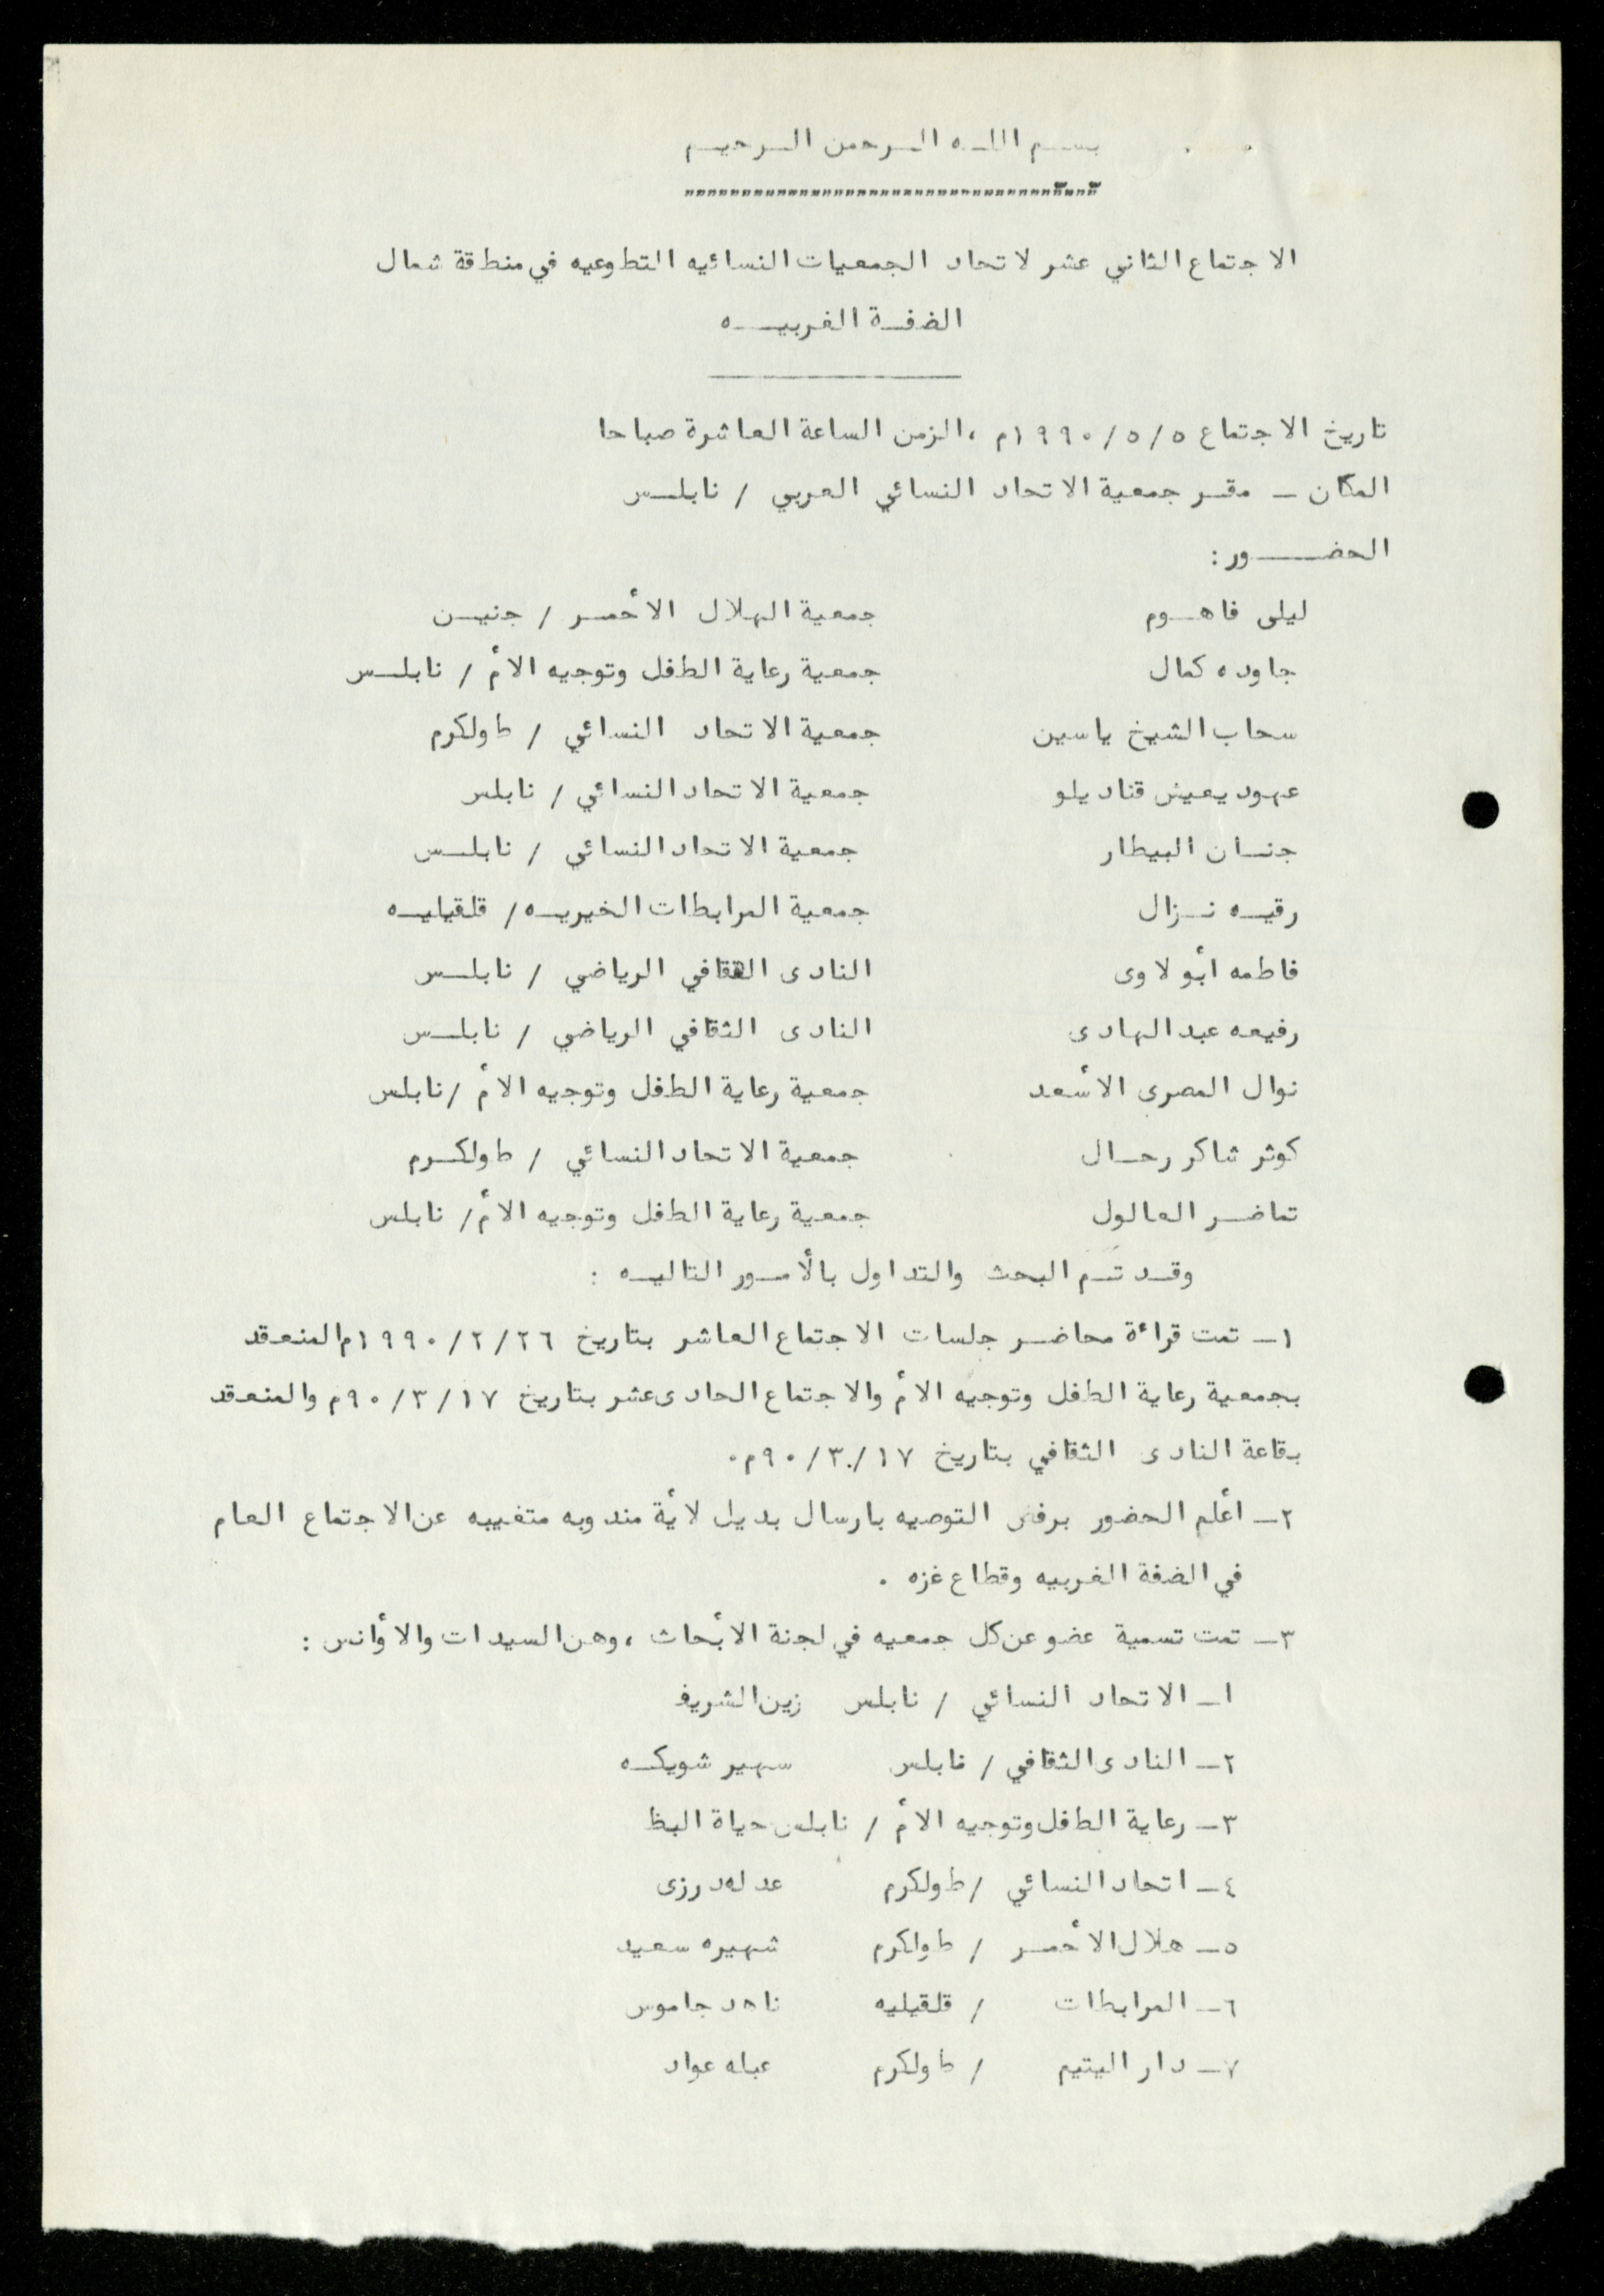 بسم الله الرحمن الرحيم
الاجتماع الثاني عشر لاتحاد الجمعيات النسائيه التطوعيه في منطقة شمال
الضفة الغربيه
تاريخ الاجتماع ١٩٩٠/٥/٥م ،الزمن الساعة العاشرة صباحا
المكان - مقر جمعية الاتحاد النسائي العربي / نابلس
الحضور :
ليلى فاهوم جمعية الهلال الأحمر / جنين
جاوده كمال جمعية رعاية الطفل وتوجيه الأم / نابلس
سحاب الشيخ ياسين جمعية الاتحاد النسائي / طولكرم
عهود يعيش قناديلو جمعية الاتحاد النسائي / نابلس
جنان البيطار جمعية الاتحاد النسائي / نابلس
رقيه نزال جمعية المرابطات الخيريه / قلقيليه
فاطمه أبو لاوى النادى الثقافي الرياضي / نابلس
رفيعه عبد الهادى النادى الثقافي الرياضي / نابلس
نوال المصرى الأسعد جمعية رعاية الطفل وتوجيه الأم /نابلس
كوثر شاكر رحال جمعية الاتحاد النسائي / طولكرم
تماضر العالول جمعية رعاية الطفل وتوجيه الأم/ نابلس
وقد تم البحث والتداول بالأمور التاليه :
١- تمت قراءة محاضر جلسات الاجتماع العاشر بتاريخ ١٩٩٠/٢/٢٦م المنعقد
بجمعية رعاية الطفل وتوجيه الأم والاجتماع الحادى عشر بتاريخ ٩٠/٣/١٧م والمنعقد
بقاعة النادى الثقافي بتاريخ ٩٠/٣/١٧م.
٢- أعلم الحضور برفض التوصيه بارسال بديل لأية مندوبه متغيبه عن الاجتماع العام
في الضفة الغربيه وقطاع غزه .
٣- تمت تسمية عضو عن كل جمعيه في لجنة الأبحاث ، وهن السيدات والأوانس :
١- الاتحاد النسائي / نابلس زين الشريف
٢- النادى الثقافي / نابلس سهير شويكه
٣- رعاية الطفل وتوجيه الأم / نابلس حياة البظ
٤- اتحاد النسائي /طولكرم عدله درزى
٥- هلال الأحمر / طولكرم شهيره سعيد
٦- المرابطات / قلقيليه ناهد جاموس
٧- دار اليتيم / طولكرم عبله عواد